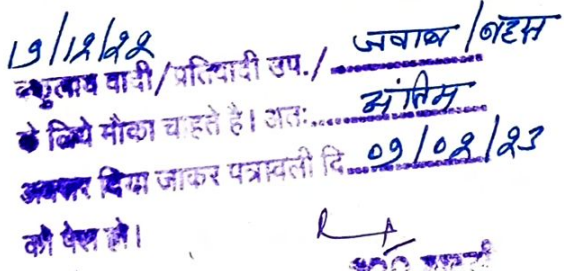 19/12/22
वकुलाय वादी/प्रतिवादी उप./ जवाब/बहस
के लिये मौका चाहते है। अतः..... अंतिम
अवसर दिया जाकर पत्रावली दि. 09/02/23
को पेश हो।